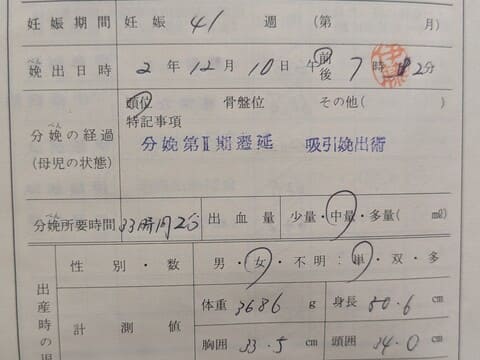 妊娠期間 妊娠 41 週 (第 月)
娩出日時 2年12月10日 午前後 7時 2分
分娩の経過 (母児の状態) 頭位 骨盤位 その他( )
特記事項
分娩第Ⅱ期遷延 吸引娩出術
分娩所要時間 33時間2分 出血量 少量・中量・多量( ㎖)
性別・数 男・女・不明:単・双・多
計測値 体重 3686 g 身長 50.6 cm
胸囲 33.5 cm 頭囲 34.0 cm
出産時の児